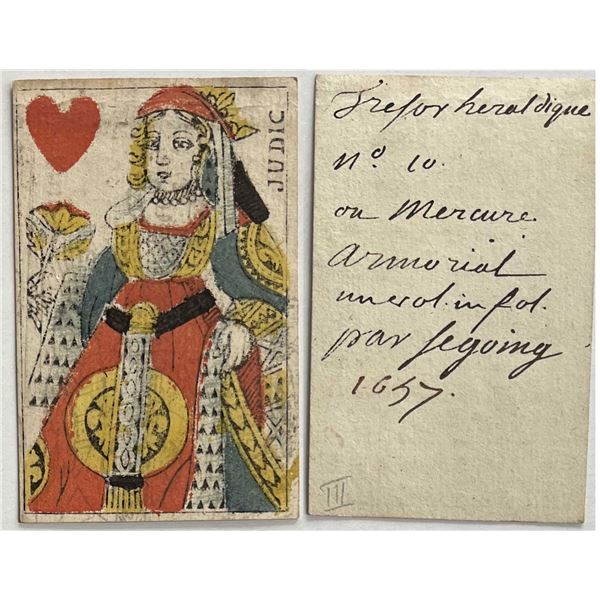 JUDIC
Tresor heraldique
nº. 10.
ou Mercure
armorial
un vol. in fol.
par Segoing
1657.
III